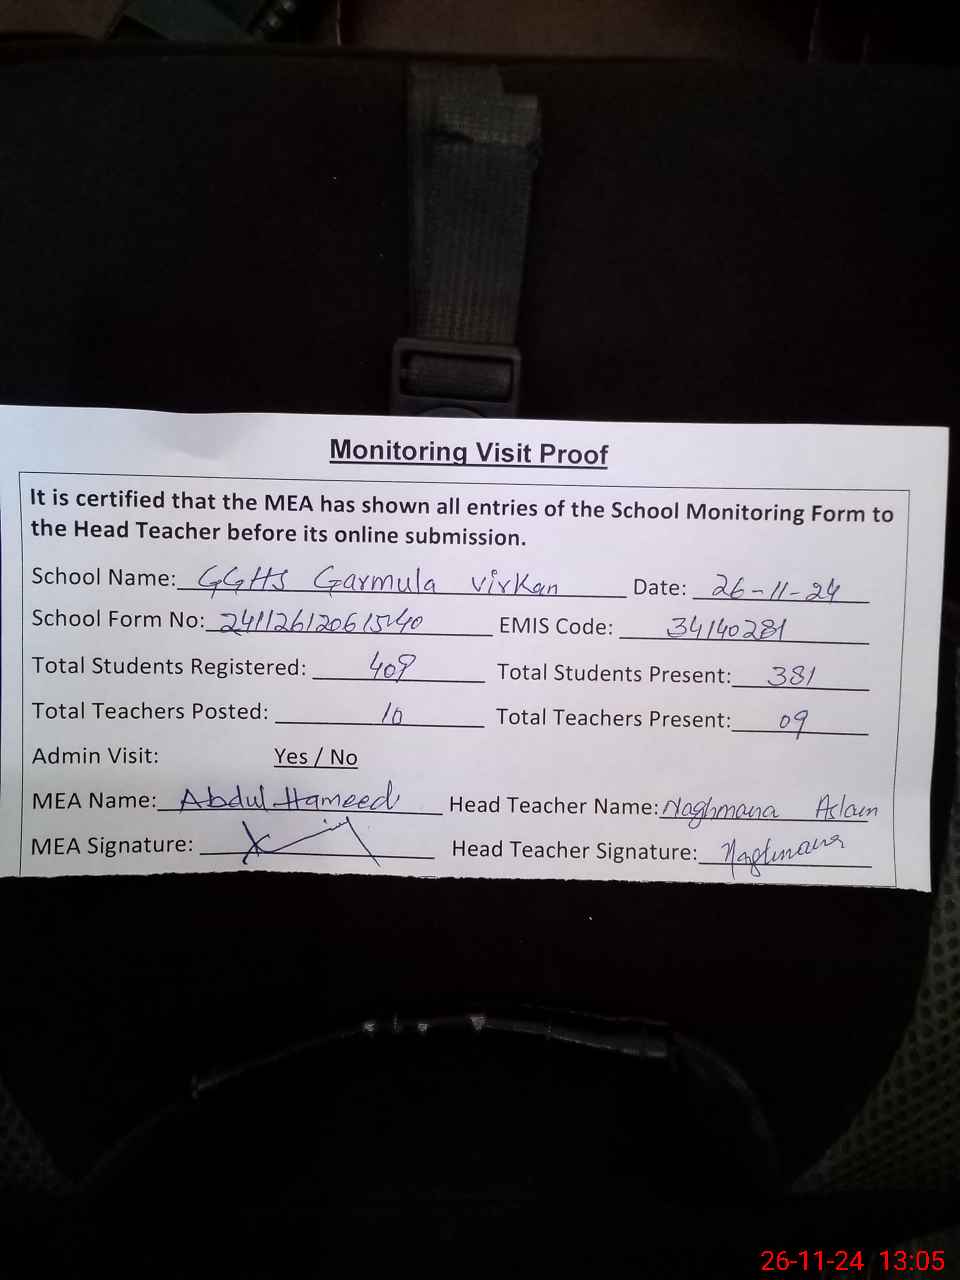 Monitoring Visit Proof
It is certified that the MEA has shown all entries of the School Monitoring Form to
the Head Teacher before its online submission.
School Name: GGHS Garmula virkan Date: 26-11-24
School Form No: EMIS Code: 34140281
Total Students Registered: 409 Total Students Present: 381
Total Teachers Posted: 10 Total Teachers Present: 09
Admin Visit: Yes / No
MEA Name: Abdul Hameed Head Teacher Name: Naghmana Aslam
MEA Signature: Head Teacher Signature: Naghmana
26-11-24 13:05